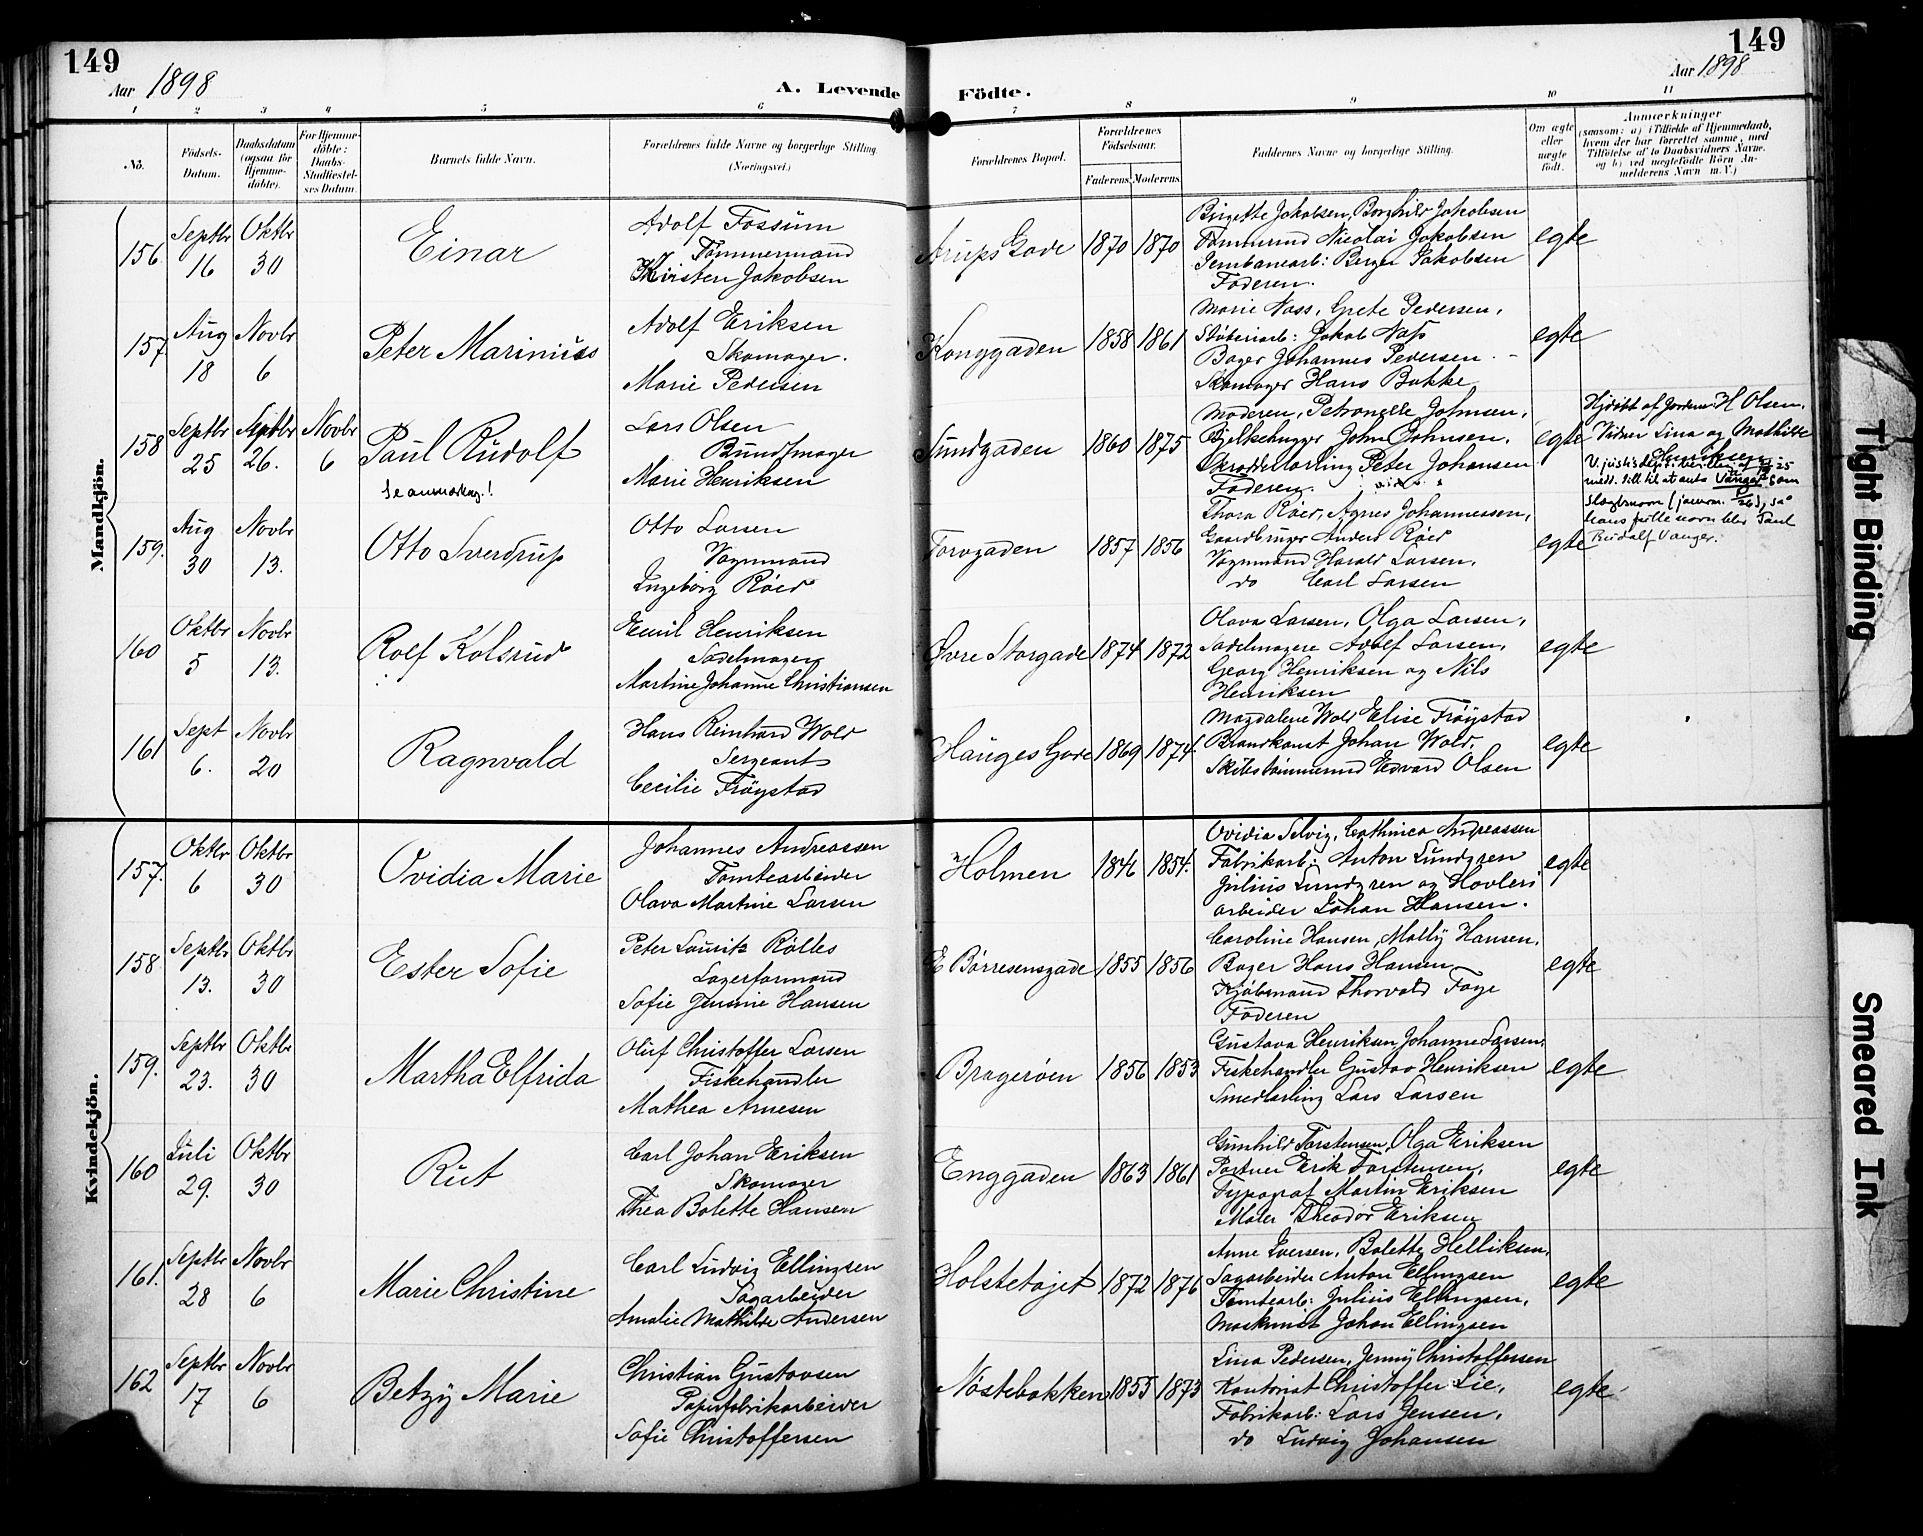 149
149
Aar 1898
A. Levende
Födte.
Aar 1898
1 2 3 4 5 6 7 8 9 10 11
No.
Födsels-
Datum.
Daabsdatum
(ogsaa for
Hjemme-
döbte).
For Hjemme-
döbte:
Daabs-
Stadfæstel-
ses Datum.
Barnets fulde Navn.
Forældrenes fulde Navne og borgerlige Stilling.
(Næringsvei.)
Forældrenes Bopæl.
Forældrenes
Födselsaar.
Faderens. Moderens.
Faddernes Navne og borgerlige Stilling.
Om ægte
eller
uægte
födt.
Anmærkninger
(saasom: a) i Tilfælde af Hjemmedaab,
hvem der har forrettet samme, med
Tilföielse af to Daabsvidners Navne,
og b) ved uægtefödte Börn An-
melderens Navn m. V.)
Mandkjön.
156
Septbr
16
Oktbr
30
Einar
Adolf Fossum
Tömmermand
Kirsten Jakobsen
Arups Gade
1870 1870
Birgette Jakobsen, Borghild Jakobsen
Tömmermd Nicolai Jakobsen
Jernbanearb: Berger Jakobsen
Faderen.
egte
157
Aug
18
Novbr
6
Peter Marinius
Adolf Eriksen
Skomager.
Marie Pedersen
Konggaden
1858 1861
Marie Nass, Grete Pedersen,
Støberiarb: Jakob Nass
Bager Johannes Pedersen
Skomager Hans Bakke
egte
158
Septbr
25
Septbr
26.
Novbr
6
Paul Rudolf
Se anmerkng.!
Lars Olsen
Bundtmager
Marie Henriksen
Sundgaden
1860 1875
Moderen, Petronelle Johnsen,
Bjelkehugger John Johnsen,
Skrædderlærling Peter Johansen
Faderen.
egte
Hjdöbt af Jordem: H Olsen.
Vidner Lina og Mathilde
Henriksen
V. justisdep.s bevilling af 25
medd. till. til at anta Vanger som
slægtsnavn (journ. 26), så
hans fulle navn blir Paul
Rudolf Vanger.
159.
Aug
30
Novbr
13.
Otto Sverdrup
Otto Larsen
Vognmand
Ingeborg Röed
Torvgaden
1857 1856
Thora Röed, Agnes Johannessen,
Gaardbruger Anders Röed
Vognmand Harald Larsen,
do Carl Larsen
egte
160
Oktbr
5
Novbr
13.
Rolf Kolsrud
Emil Henriksen
Sadelmager
Martine Johanne Christiansen
Övre Storgade
1874 1872
Olava Larsen, Olga Larsen,
Sadelmagere Adolf Larsen,
Georg Henriksen og Nils
Henriksen
egte
161
Sept
6.
Novbr
20
Ragnvald
Hans Reinhard Wold
Sergeant
Cecilie Fröystad
Hauges Gade
1869 1874.
Magdalene Wold Elise Fröystad
Brandkonst Johan Wold,
Skibstömmermd Edvard Olsen
egte
Kvindekjön.
157.
Oktbr
6
Oktbr
30
Ovidia Marie
Johannes Andreassen
Tomtearbeider
Olava Martine Larsen
Holmen
1846 1854.
Ovidia Selvig, Cathinca Andreassen
Fabrikarb: Anton Lundgren
Julius Lundgren og Hövleri
arbeider Johan Hansen.
egte
158
Septbr
13.
Oktbr
30
Ester Sofie
Peter Lauritz Rölles
Lagerformand
Sofie Jensine Hansen
E Börresensgade
1855 1856
Caroline Hansen, Mally Hansen,
Bager Hans Hansen
Kjöbmand Thorvald Foye
Faderen
egte
159.
Septbr
23.
Oktbr
30
Martha Elfrida
Oluf Christoffer Larsen
Fiskehandler
Mathea Arnesen
Brageröen
1856 1853
Gustava Henriksen Johanne Larsen,
Fiskehandler Gustav Henriksen
Smedlærling Lars Larsen
egte
160
Juli
29.
Oktbr
30
Rut
Carl Johan Eriksen
Skomager
Thea Bolette Hansen
Enggaden
1863 1861
Gunhild Torstensen, Olga Eriksen
Portner Erik Torstensen,
Typograf Martin Eriksen
Maler Theodor Eriksen
egte
161.
Septbr
28
Novbr
6
Marie Christine
Carl Ludvig Ellingsen
Sagarbeider
Amalie Mathilde Andersen
Holstetöjet
1872 1876
Anne Iversen, Bolette Helliksen,
Sagarbeider Anton Ellingsen
Tomtearb: Julius Ellingsen,
Maskinist Johan Ellingsen
egte
162
Septbr
17
Novbr
6
Betzy Marie
Christian Gustavsen
Papirfabrikarbeider
Sofie Christoffersen
Nöstebakken
1855 1873
Lina Pedersen, Jenny Christoffersen
Kontorist Christoffer Lie,
Fabrikarb: Lars Jensen,
do Ludvig Johansen
egte
Tight Binding
Smeared Ink